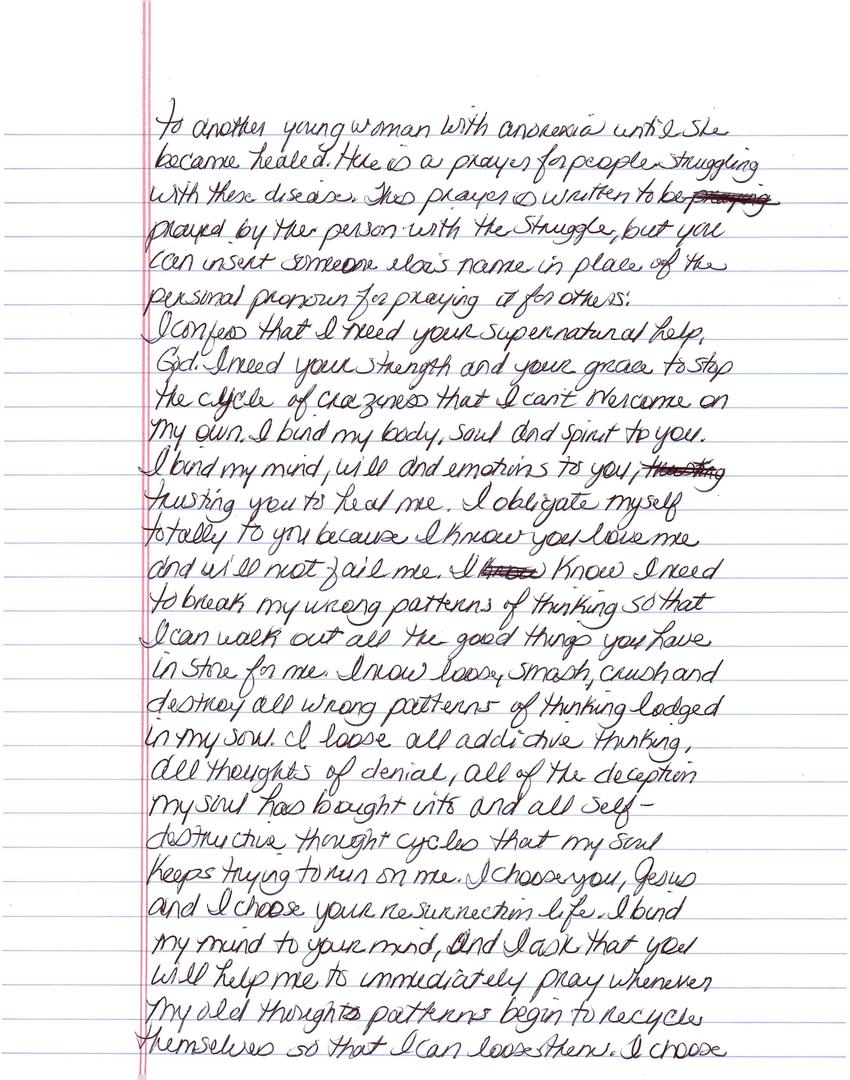 to another young woman with anorexia until she
became healed. Here is a prayer for people struggling
with these disease. This prayer is written to be praying
prayed by the person with the struggle, but you
can insert someone else's name in place of the
personal pronoun for praying it for others:
I confess that I need your supernatural help,
God. I need your strength and your grace to stop
the cycle of craziness that I can't overcome on
my own. I bind my body, soul and spirit to you.
I bind my mind, will and emotions to you, trusting
trusting you to heal me. I obligate myself
totally to you because I know you love me
and will not fail me. I know know I need
to break my wrong patterns of thinking so that
I can walk out all the good things you have
in store for me. I now loose, smash, crush and
destroy all wrong patterns of thinking lodged
in my soul. I loose all addictive thinking,
all thoughts of denial, all of the deception
my soul has bought into and all self-
destructive thought cycles that my soul
keeps trying to run on me. I choose you, Jesus
and I choose your resurrection life. I bind
my mind to your mind, and I ask that you
will help me to immediately pray whenever
my old thoughts patterns begin to recycle
themselves so that I can loose them. I choose